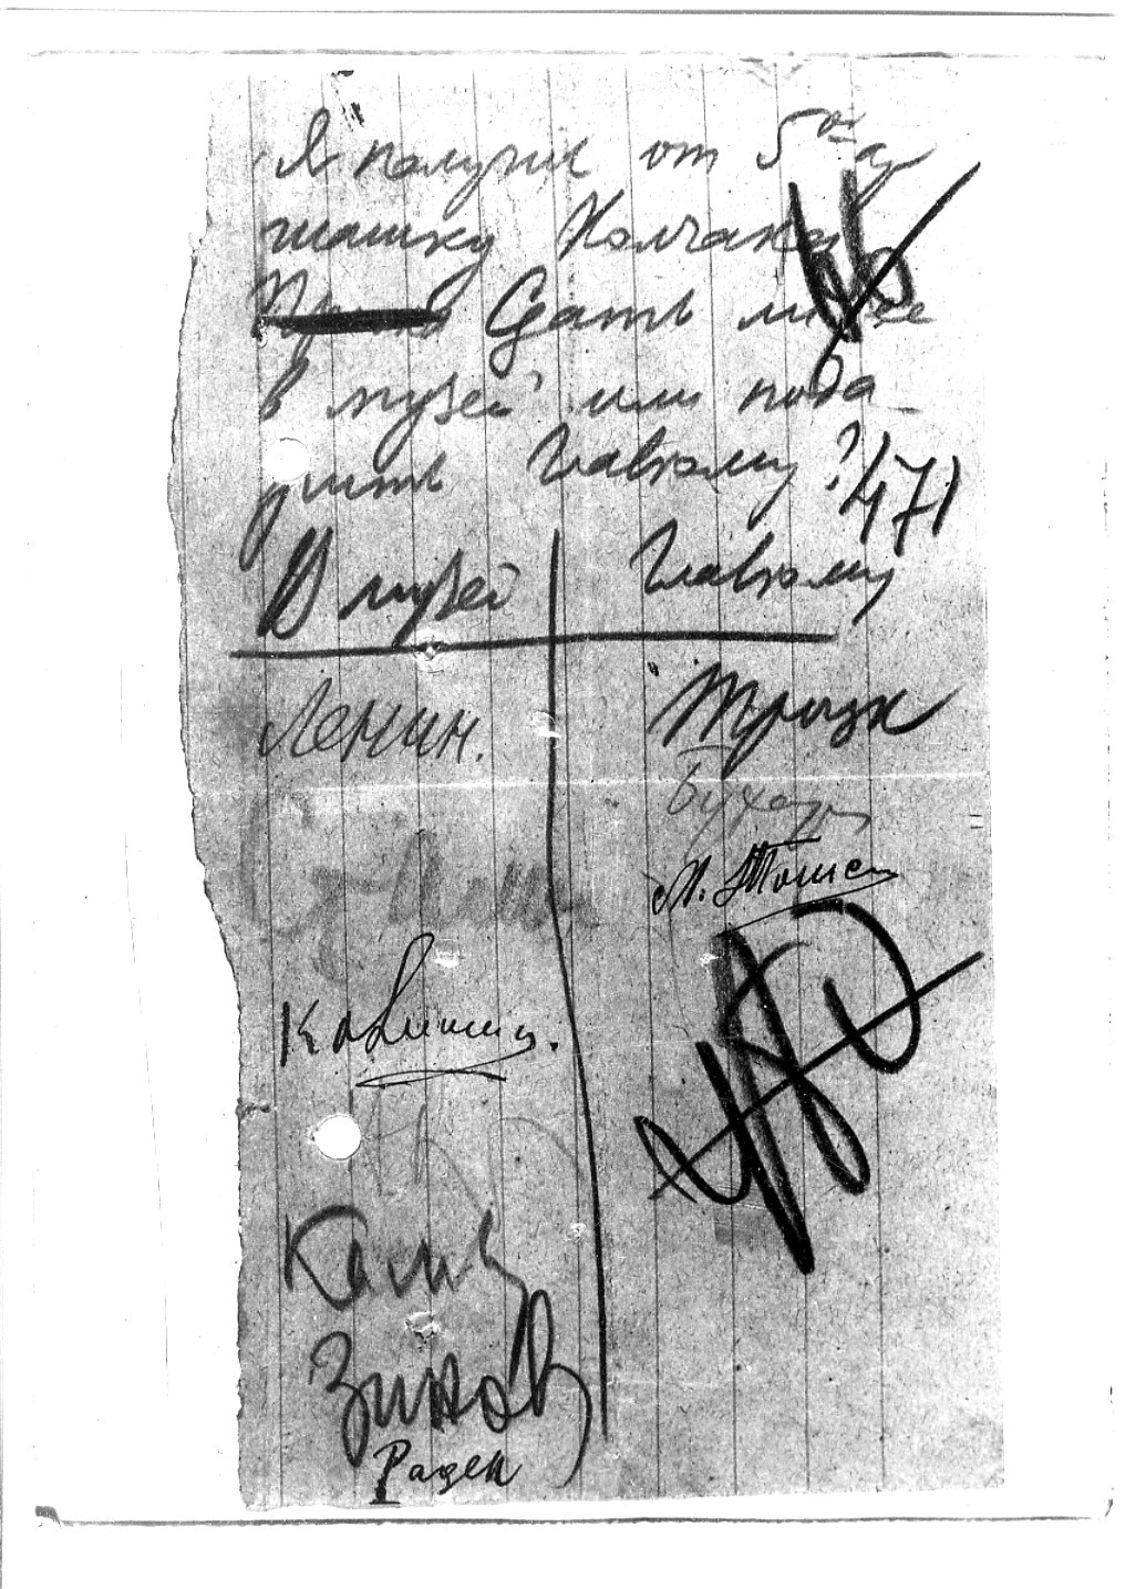 Я получил от 5ой а
шашку Колчака
Сдать ли ее
в музей или пода
рить Главкому?
471
В музей Главкому
Ленин. Троцк
Бухар
М. Томс
Калинин.
Каме
Зинов
Радек